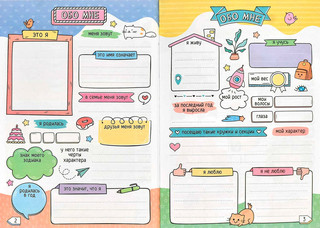 ОБО МНЕ
ЭТО Я
МЕНЯ ЗОВУТ
ЭТО ИМЯ ОЗНАЧАЕТ
В СЕМЬЕ МЕНЯ ЗОВУТ
Я РОДИЛАСЬ
ДРУЗЬЯ МЕНЯ ЗОВУТ
ЗНАК МОЕГО
ЗОДИАКА
У НЕГО ТАКИЕ
ЧЕРТЫ
ХАРАКТЕРА
Я
РОДИЛАСЬ
В ГОД
ЭТО ЗНАЧИТ, ЧТО Я
2
ОБО МНЕ
Я ЖИВУ
Я УЧУСЬ
МОЙ ВЕС
МОЙ РОСТ
МОИ
ВОЛОСЫ
ЗА ПОСЛЕДНИЙ ГОД
Я ВЫРОСЛА
ГЛАЗА
Я ПОСЕЩАЮ ТАКИЕ КРУЖКИ И СЕКЦИИ
МОЙ ХАРАКТЕР
Я ЛЮБЛЮ
Я НЕ ЛЮБЛЮ
3